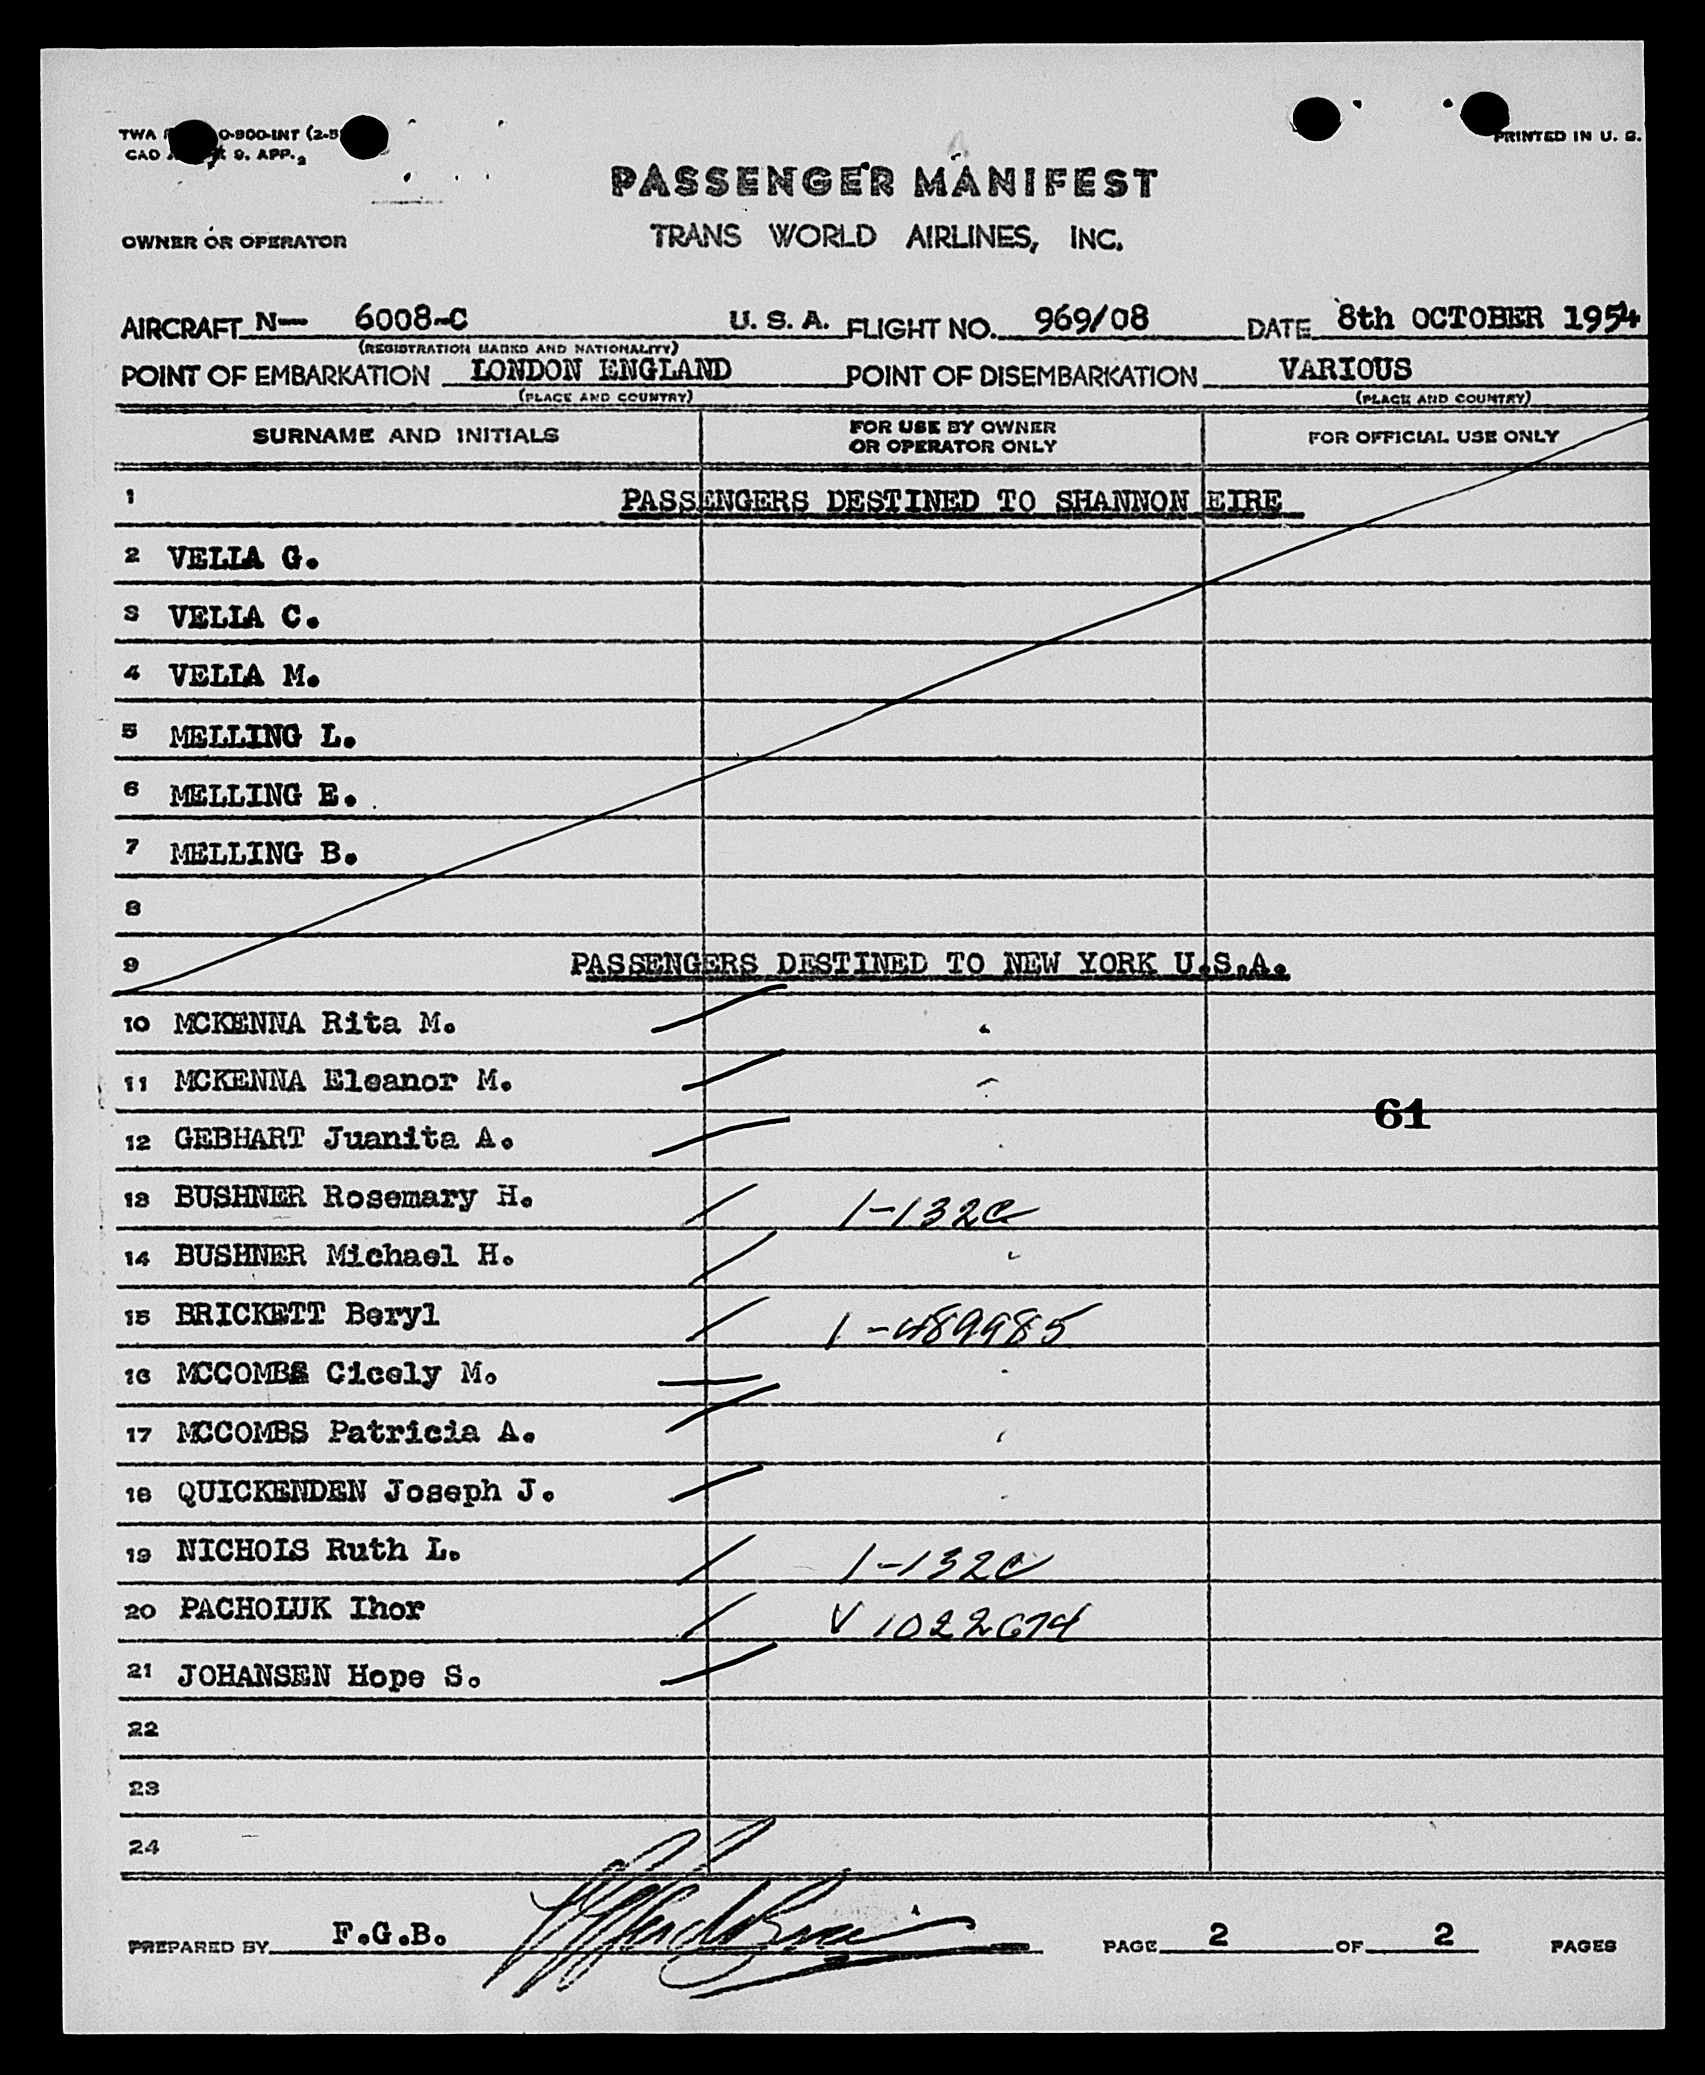 TWA 0-900-INT (2-5
PRINTED IN U. S.
CAO 9. APP. 2
PASSENGER MANIFEST
OWNER OR OPERATOR TRANS WORLD AIRLINES, INC.
AIRCRAFT N— 6008-C U. S. A. FLIGHT NO. 969/08 DATE 8th OCTOBER 1954
(REGISTRATION MARKS AND NATIONALITY)
POINT OF EMBARKATION LONDON ENGLAND POINT OF DISEMBARKATION VARIOUS
(PLACE AND COUNTRY) (PLACE AND COUNTRY)
SURNAME AND INITIALS FOR USE BY OWNER OR OPERATOR ONLY FOR OFFICIAL USE ONLY
1 PASSENGERS DESTINED TO SHANNON EIRE
2 VELLA G.
3 VELLA C.
4 VELLA M.
5 MELLING L.
6 MELLING E.
7 MELLING B.
8
9 PASSENGERS DESTINED TO NEW YORK U.S.A.
10 MCKENNA Rita M.
11 MCKENNA Eleanor M.
61
12 GEBHART Juanita A.
13 BUSHNER Rosemary H. 1-132C
14 BUSHNER Michael H.
15 BRICKETT Beryl 1-489985
16 MCCOMBS Cicely M.
17 MCCOMBS Patricia A.
18 QUICKENDEN Joseph J.
19 NICHOLS Ruth L. 1-132C
20 PACHOLUK Ihor V 1022674
21 JOHANSEN Hope S.
22
23
24
PREPARED BY F.G.B. PAGE 2 OF 2 PAGES